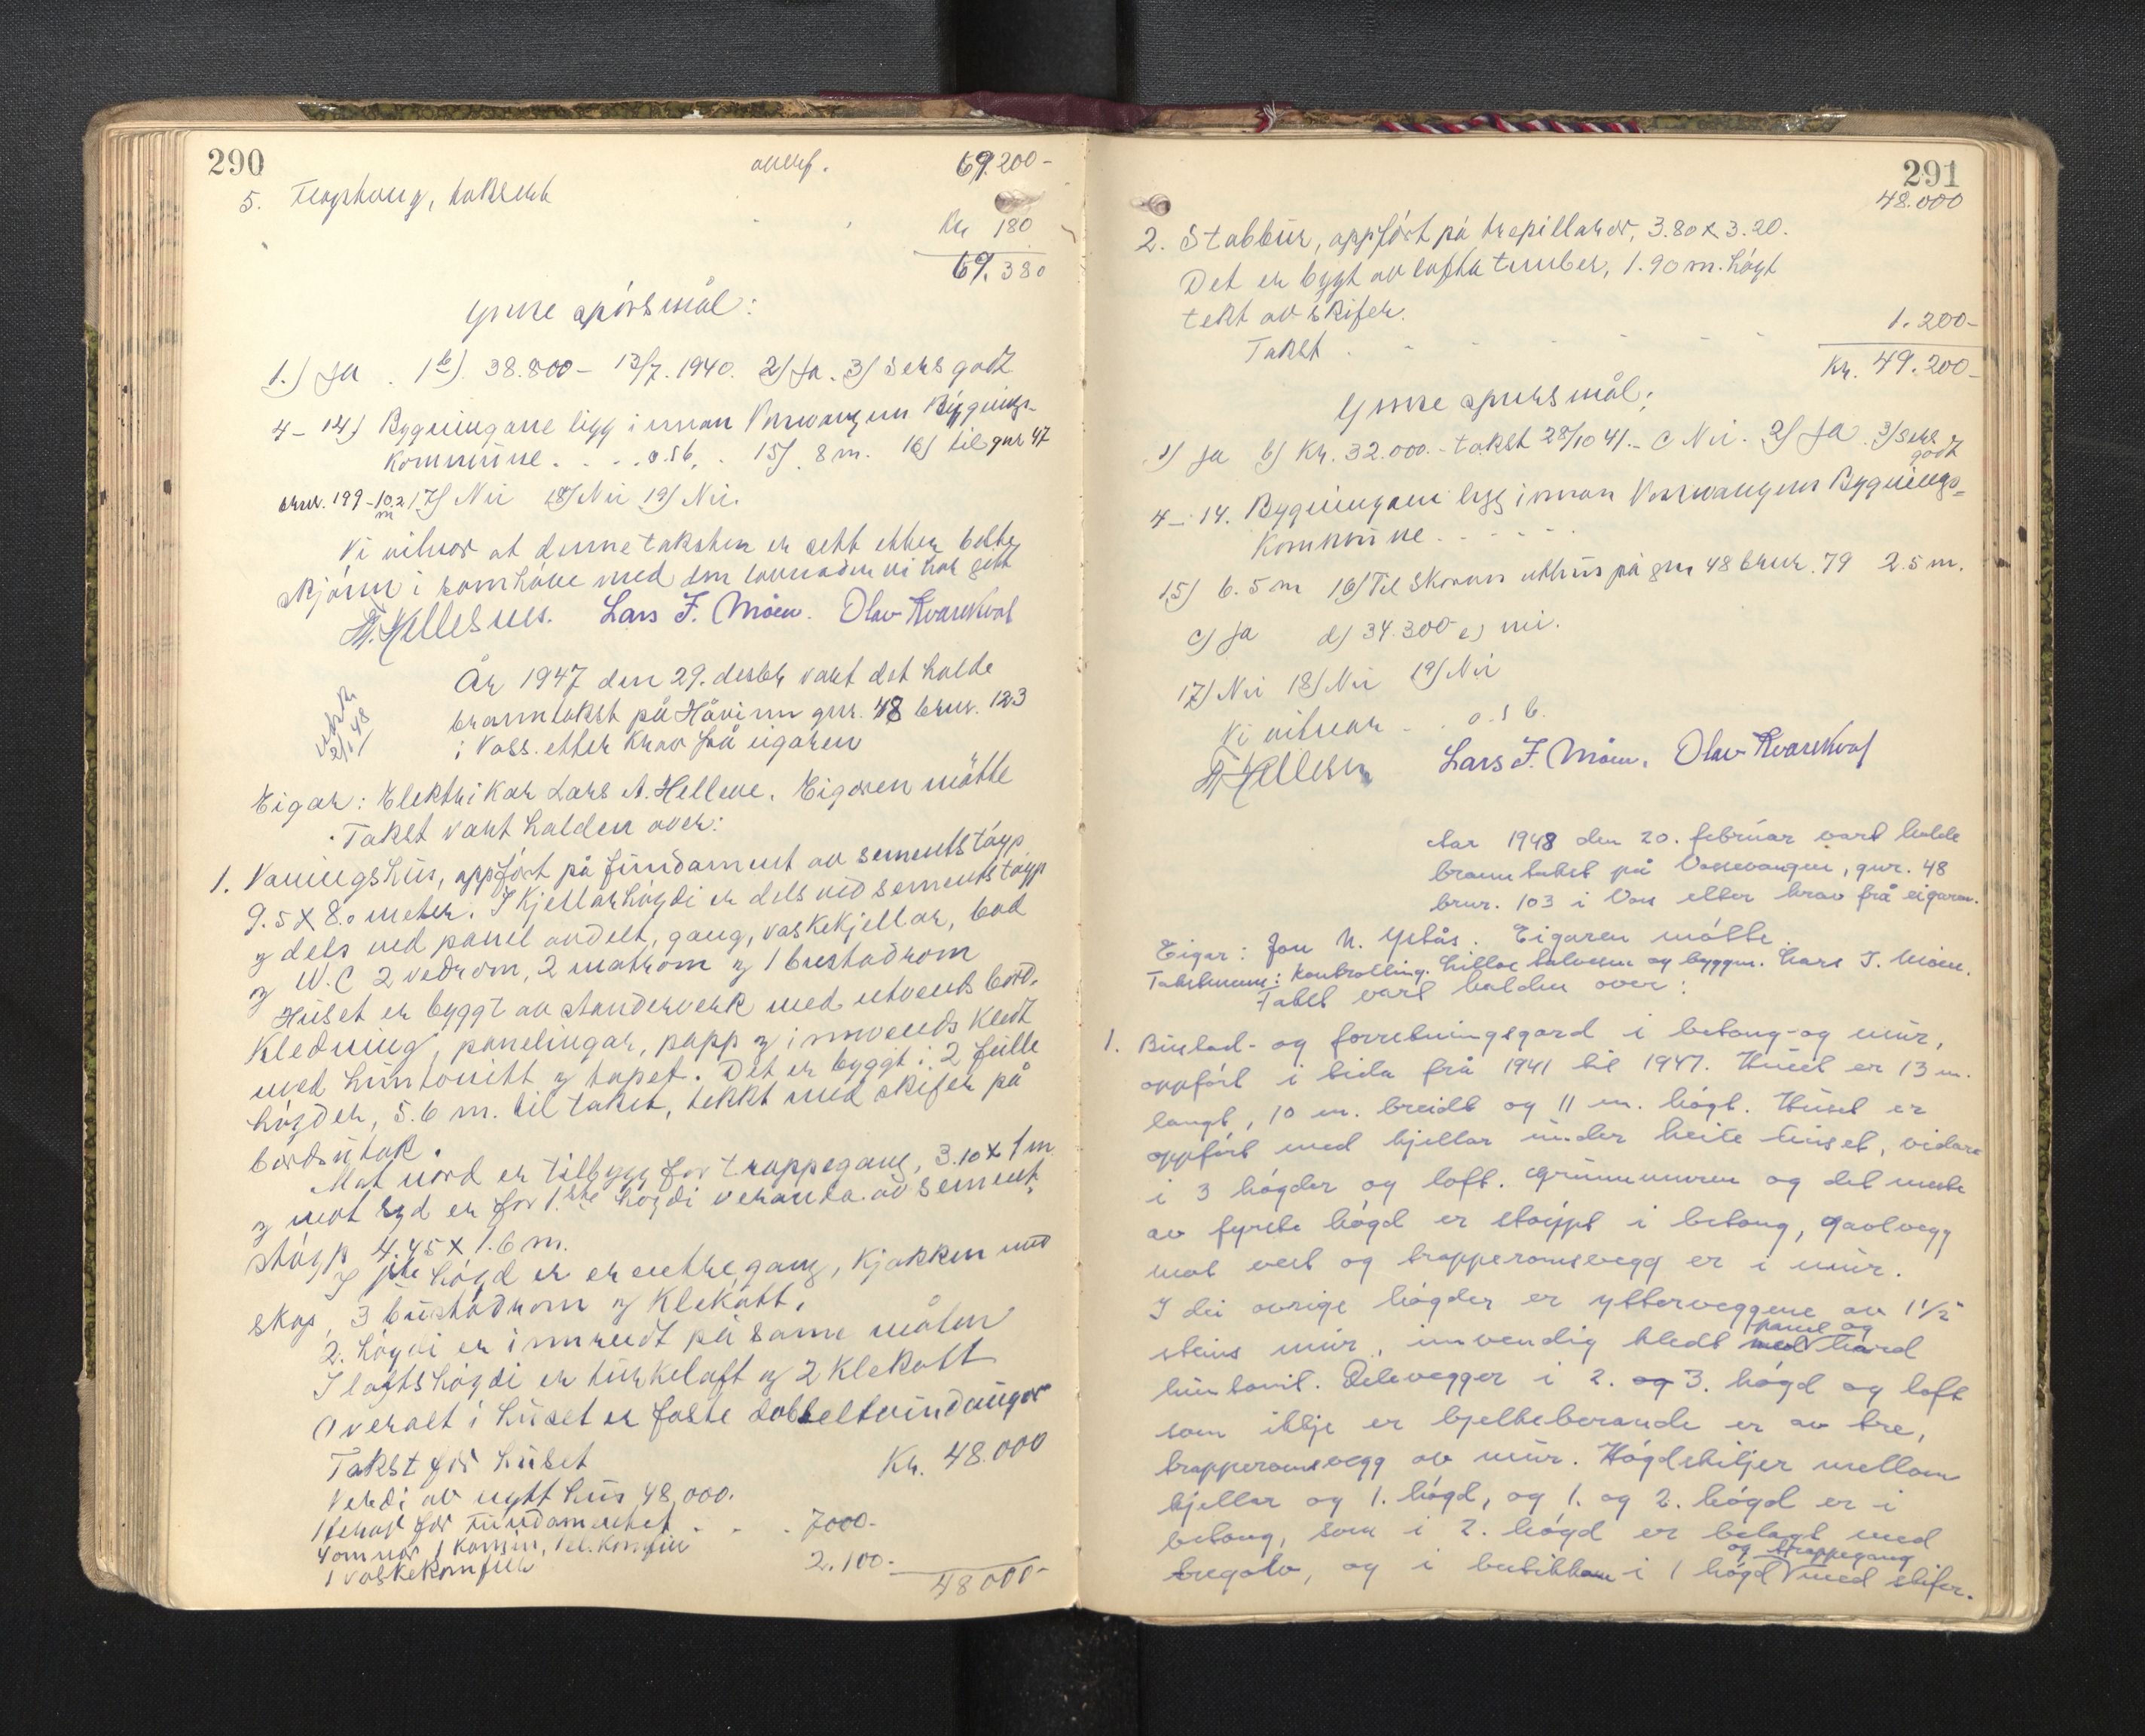 290
overf. 69.200-
5. Flaghaug, taksert
Kr 180
69.380
Ymse spörsmål:
1.) Ja . 1b) 38.800- 13/7. 1940. 2) Ja. 3) Sers godt
4-14) Bygningane ligg innan Vossevangen Bygnings-
kommune. . . . o.s b. . 15) 8 m. 16) til gnr 47
brnr. 199 - 10.2 m 17) Nei 18) Nei 19) Nei.
Vi vitnar at denne taksten er sett etter beste
skjönn i samhöve med den lovnaden vi har gitt
Lars F. Møen. Olav Kvarekval
År 1947 den 29. desbr vart det halde
branntakst på Håvinn gnr. 48 brnr. 123
i Voss. etter krav frå eigaren
2/1 48
Eigar: Elektrikar Lars A. Helleve. Eigaren mötte
Takst vart halden over:
1. Vaningshus, oppfört på fundament av sementstöyp
9.5 x 8.0 meter. I Kjellarhögdi er dels ved sementstöyp
og dels ved panel avdelt, gang, vaskekjellar, bad
og W.C 2 vedrom, 2 matrom og 1 bustadrom
Huset er byggt av standerverk med utvends bord-
kledning, panelingar, papp og innvends kledt
med huntonitt og tapet. Det er byggt i 2 fulle
högder, 5.6 m. til taket, tekkt med skifer på
bordsutak.
Mot nord er tilbygg for trappegang, 3.10 x 1 m
og mot syd er for 1.ste högdi veranda av sement-
stöyp 4.45 x 1.6 m.
I 1ste högd er er entre, gang, kjökken med
skap, 3 bustadrom og klekott.
2. högdi er innreidt på same måten
I loftshögdi er turkeloft og 2 klekott
Overalt i huset er faste dobbeltvindaugor
Takst for huset Kr. 48.000
Verdi av nytt hus 48,000.
for Fundamentet . . . 7000.-
4 omnar 1 Kamin, 1 el. Komfur
1 vaskekomfur 2.100.-
48000-
291
48.000
2. Stabbur, oppfört på trepillarar, 3.80 x 3.20.
Det er bygt av lafta tumber, 1.90 m. högt
tekt av skifer.
Takst . - - - - - 1.200-
Kr. 49.200-
Ymse spursmål;
1) Ja b) Kr. 32.000.- takst 28/10 41.- c Nei. 2) Ja. 3) Sers godt
4-14. Bygningane ligg innan Vossevangens Bygnings-
kommune. - - - -
15) 6.5 m 16) Til uthus på gnr 48 brnr. 79 2.5 m.
c) Ja d) 34.300 e) nei.
17) Nei 18) Nei 19) Nei
Vi vitnar - . . o.s b.
Lars F. Møen. Olav Kvarekval
Aar 1948 den 20. februar vart halde
branntakst på Vossevangen, gnr. 48
brnr. 103 i Voss etter krav frå eigaren.
Eigar: Jon N. Ystås. Eigaren mótte.
Takstmenn: og byggm. Lars F. Móen.
Takst vart halden over:
1. Bustad- og forretningsgard i betong- og mur,
oppfórt i tida frå 1941 til 1947. Huset er 13 m.
langt, 10 m. breidt og 11 m. högt. Huset er
oppfórt med kjellar under heile huset, vidare
i 3 högder og loft. Grunnmuren og det meste
av fyrste högd er stóypt i betong, gavlvegg
mot vest og trapperomsvegg er i mur.
I dei övrige högder er ytterveggene av 1 1/2
steins mur, innvendig kledt med panel og hard
huntonit. Delevegger i 2. og 3. högd og loft
som ikkje er bjelkeberande er av tre,
trapperomsvegg av mur. Högdskiljer mellom
kjellar og 1. högd, og 1. og 2. högd er i
betong, som i 2. högd er belagt med
tregolv, og i butikken i 1 högd og trappegang med skifer.